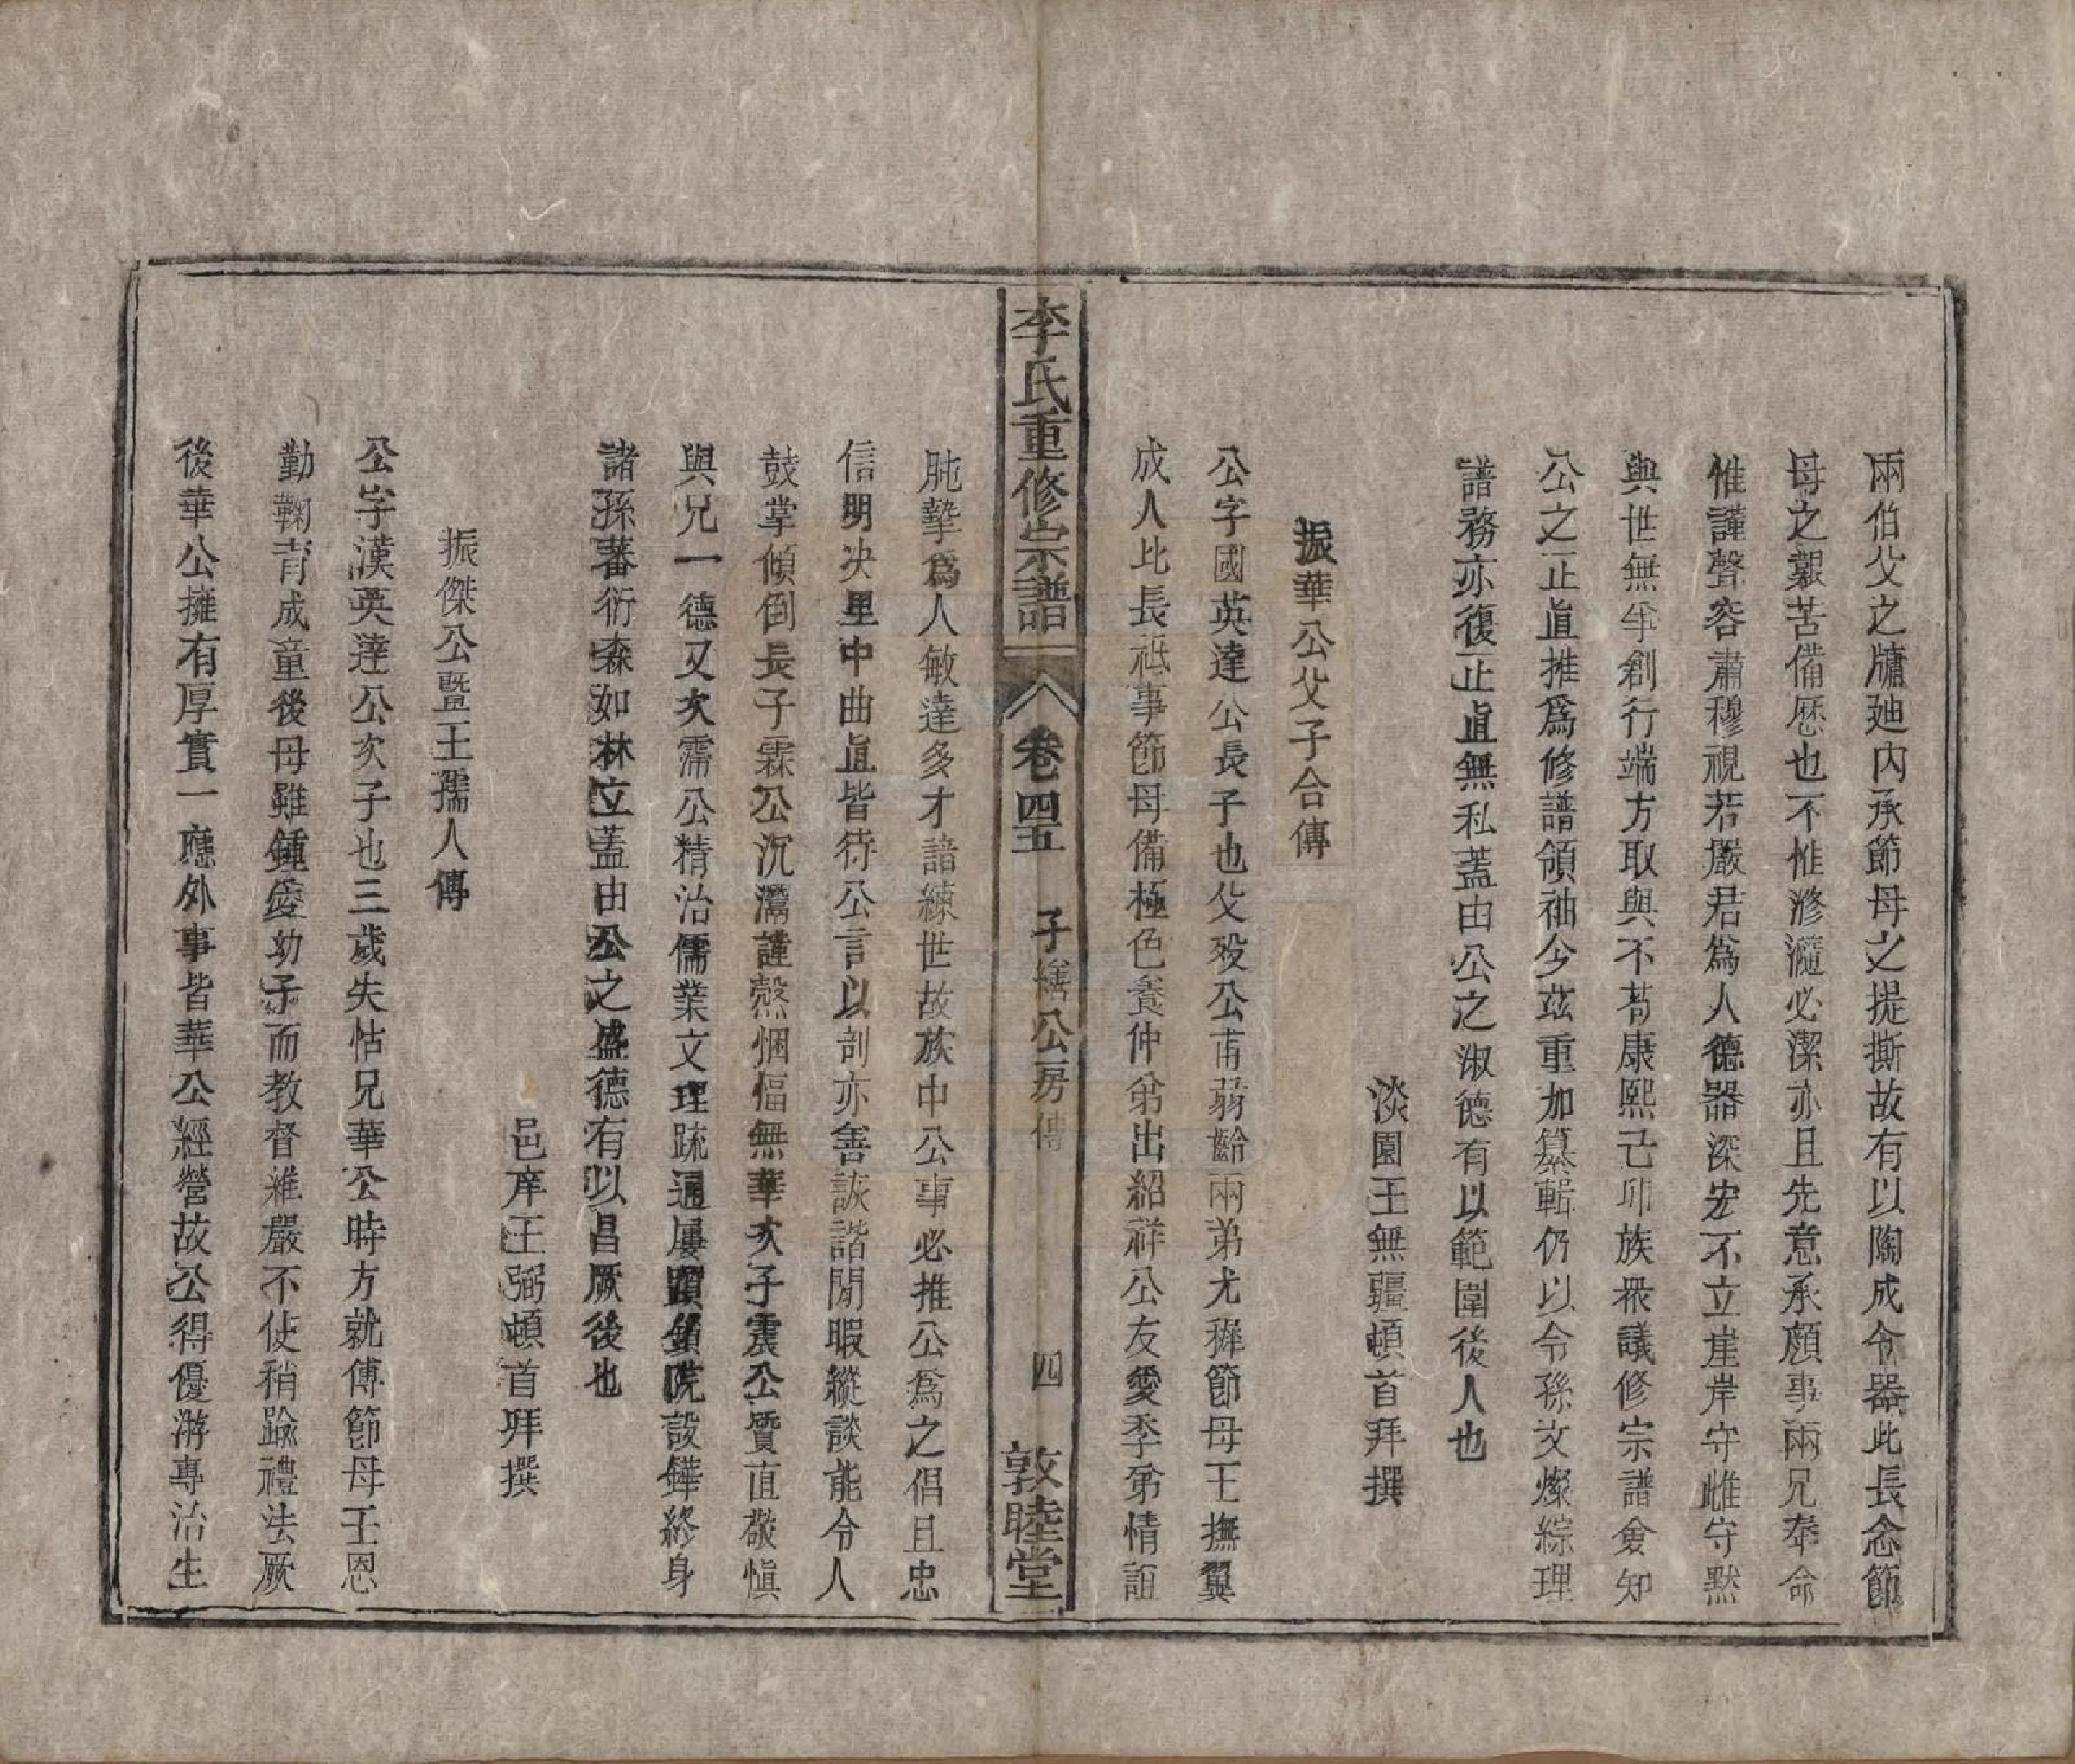 兩伯父之牗廸內承節母之提撕故有以陶成令器此長念節
母之艱苦備歷也不惟滫瀡必潔亦且先意承顏事兩兄奉命
惟謹聲容肅穆視若嚴君爲人德器深宏不立崖岸守雌守黙
與世無爭創行端方取與不苟康熙己卯族衆議修宗譜僉知
公之正直推爲修譜領袖今茲重加纂輯仍以令孫文燦綜理
譜務亦復正直無私蓋由公之淑德有以範圍後人也
淡園王無疆頓首拜撰
振華公父子合傳
公字國英達公長子也父歿公甫弱齡兩弟尤穉節母王撫翼
成人比長祗事節母備極色養仲弟出紹祥公友愛季弟情誼
李氏重修宗譜 卷四五 子公房傳 四 敦睦堂
肫摯爲人敏達多才諳練世故族中公事必推公爲之倡且忠
信明决里中曲直皆待公言以剖亦善詼諧閒暇縱談能令人
鼓掌傾倒長子霖公沉潛謹慤悃愊無華次子震公質直敬愼
與兄一德又次霈公精治儒業文理疏通屢躓鎖院設鐸終身
諸孫蕃衍森如林立蓋由公之盛德有以昌厥後也
邑庠王弼頓首拜撰
振傑公暨王孺人傳
公字漢英達公次子也三歲失怙兄華公時方就傅節母王恩
勤鞠育成童後母雖鍾愛幼子而教督維嚴不使稍踰禮法厥
後華公擁有厚實一應外事皆華公經營故公得優游專治生